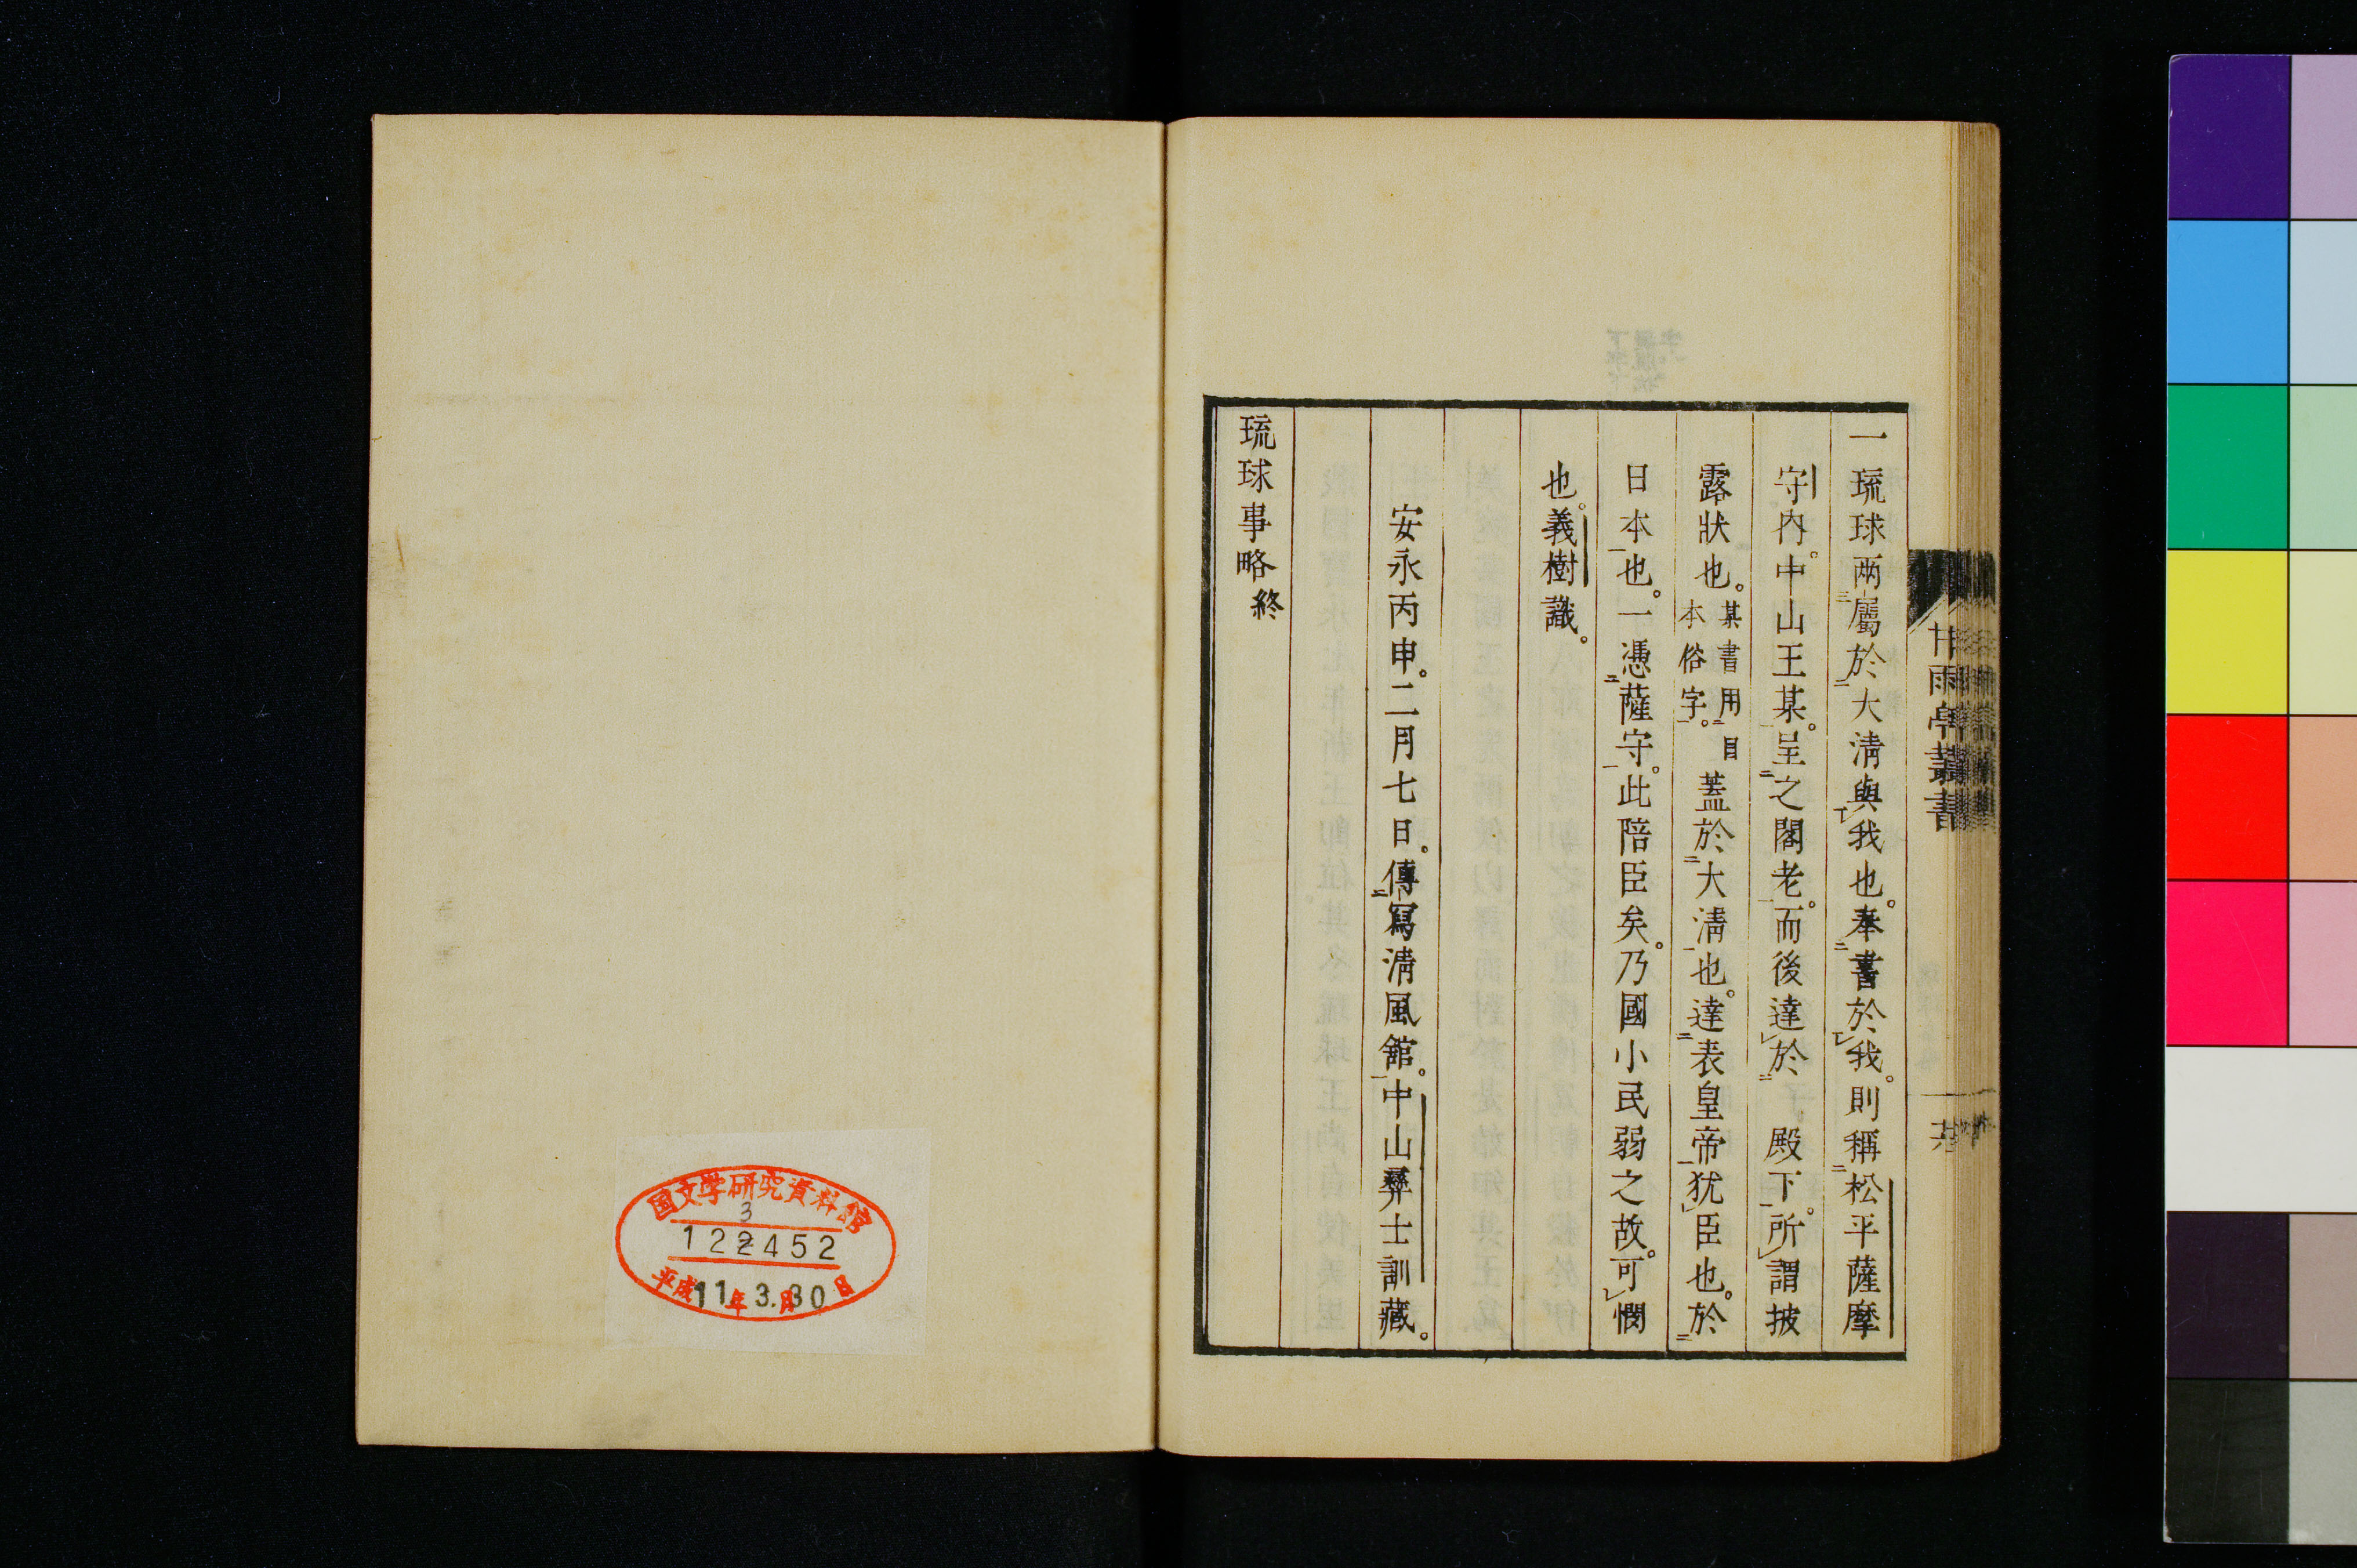 一琉球両屬於大淸與我也。奉書於我。則稱松平薩摩
守内。中山王某。呈之閣老。而後達於 殿下。所謂披
露狀也。某書用目
本俗字。蓋於大淸也。達表皇帝犹臣也。於
日本也。一憑薩守。此陪臣矣。乃國小民弱之故。可憫
也。義樹識。
安永丙申。二月七日。傳寫淸風舘。中山彝士訓藏。
琉球事略終
甘雨亭叢書
国文学研究資料館
3
122452
平成11年3.月30日